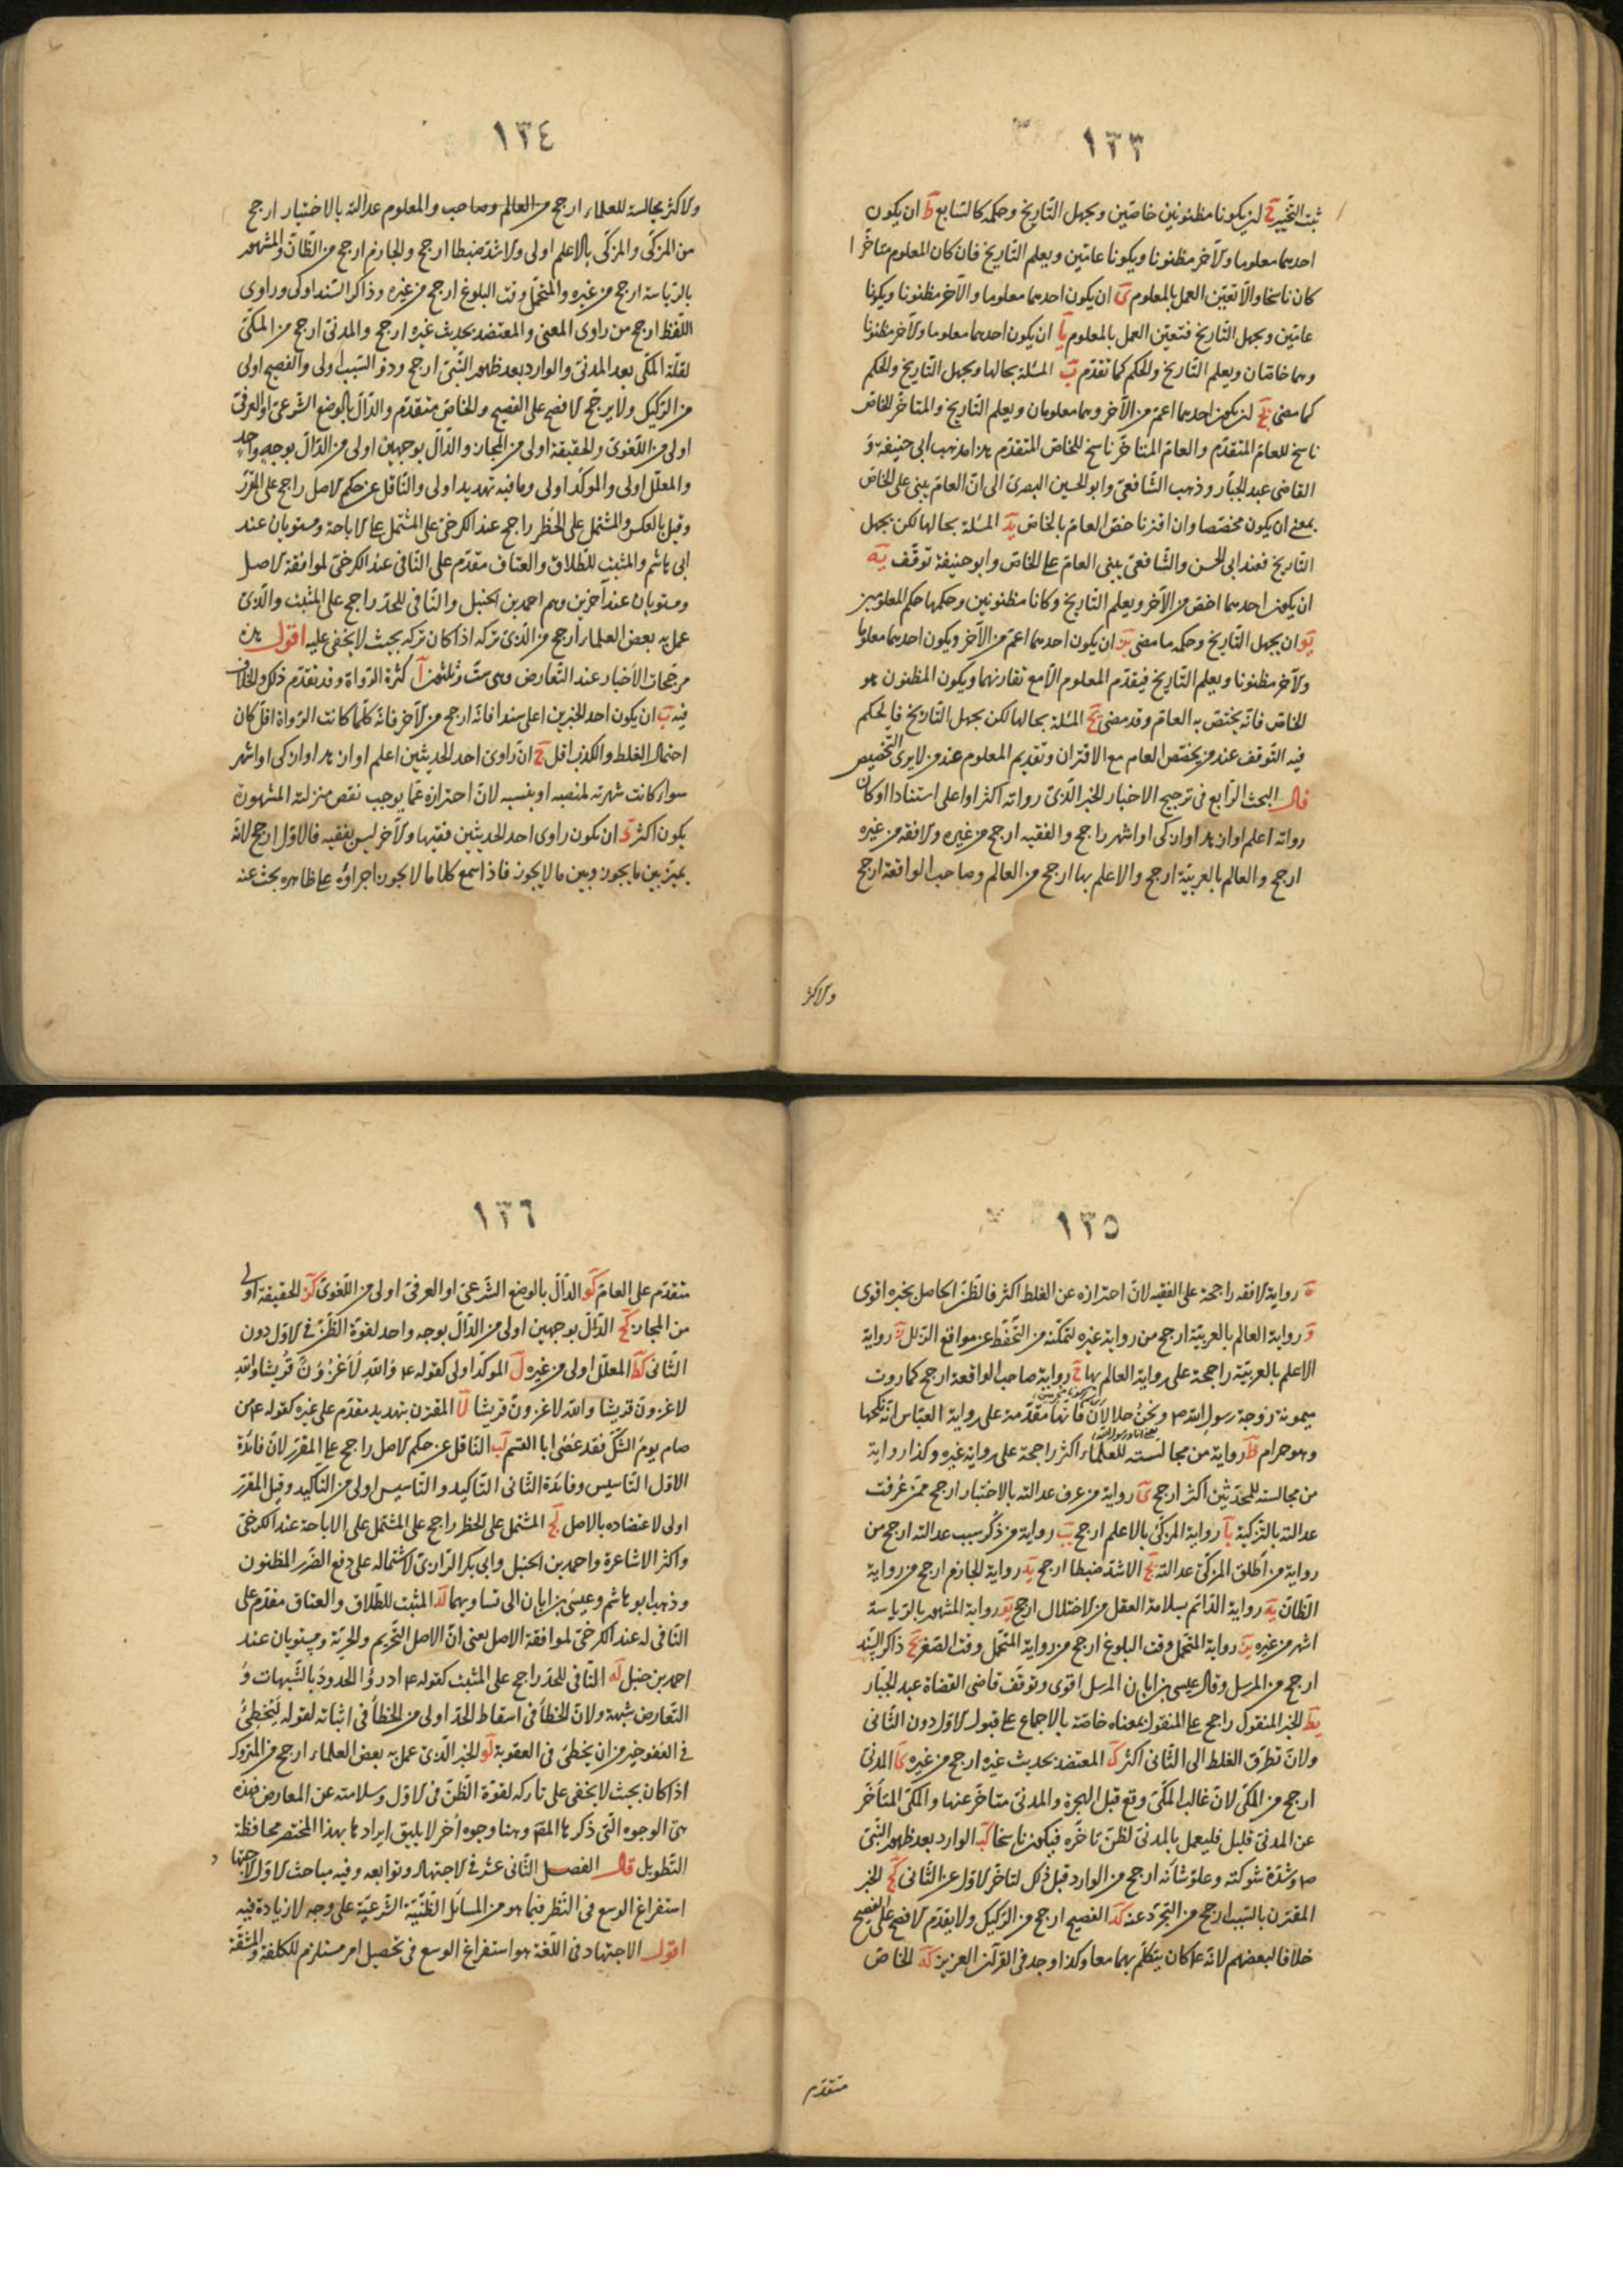 ١٣٣
ثبت التخيير ح ان يكونا مظنونين خاصّين ويجهل التّاريخ وحكمه كالسّابع ط ان يكون
احدهما معلوما والآخر مظنونا ويكونا عامّين ويعلم التّاريخ فان كان المعلوم متأخّرا
كان ناسخا والّا تعيّن العمل بالمعلوم ى ان يكون احدهما معلوما والآخر مظنونا ويكونا
عامّين ويجهل التّاريخ فتعيّن العمل بالمعلوم يا ان يكون احدهما معلوما والآخر مظنونا
وهما خاصّان ويعلم التّاريخ والحكم كما تقدّم يب المسئلة بحالها ويجهل التّاريخ والحكم
كما مضى يج ان يكون احدهما اعمّ من الآخر وهما معلومان ويعلم التّاريخ والمتاخّر الخاصّ
ناسخ للعامّ المتقدّم والعامّ المتاخّر ناسخ للخاصّ المتقدّم هذا مذهب ابى حنيفة و
القاضى عبد الجبّار وذهب الشّافعىّ وابو الحسين البصرىّ الى انّ العامّ يبنى على الخاصّ
بمعنى ان يكون مخصّصا وان اقترنا خصّ العامّ بالخاصّ يد المسئلة بحالها لكن يجهل
التّاريخ فعند ابى الحسن والشّافعىّ يبنى العامّ على الخاصّ وابو حنيفة توقّف يه
ان يكون احدهما اخصّ من الآخر ويعلم التّاريخ وكانا مظنونين وحكمها حكم المعلومين
يو ان يجهل التّاريخ وحكمه ما مضى يز ان يكون احدهما اعمّ من الآخر ويكون احدهما معلوما
والآخر مظنونا ويعلم التّاريخ فيقدّم المعلوم الّا مع تقارنهما ويكون المظنون هو
الخاصّ فانّه يختصّ به العامّ وقد مضى يح المسئلة بحالها لكن يجهل التّاريخ فالحكم
فيه التّوقف عند من يخصّص العام مع الاقتران وتقديم المعلوم عند من لا يرى التخصيص
قال البحث الرّابع فى ترجيح الاخبار الخبر الّذى رواته اكثر او اعلى استنادا او كان
رواته اعلم او ازهد او ازكى او اشهر راجح والفقيه ارجح من غيره والافقه من غيره
ارجح والعالم بالعربيّة ارجح والاعلم بها ارجح من العالم وصاحب الواقعة ارجح
والاكثر
١٣٤
والاكثر مجالسة للعلماء ارجح من العالم وصاحب والمعلوم عدالته بالاختبار ارجح
من المزكّى والمزكّى بالاعلم اولى والاشدّ ضبطا ارجح والجازم ارجح من الظّانّ والمشهور
بالرّياسة ارجح من غيره والمتحمّل وقت البلوغ ارجح من غيره وذاكر السّند اولى وراوى
اللّفظ ارجح من راوى المعنى والمعتضد بحديث غيره ارجح والمدنىّ ارجح من المكّىّ
لقلّة المكّى بعد المدنىّ والوارد بعد ظهور النّبىّ ارجح وذو السّبب اولى والفصيح اولى
من الرّكيك ولا يرجّح الافصح على الفصيح والخاصّ متقدّم والدّالّ بالوضع الشّرعىّ او العرفىّ
اولى من اللّغوىّ والحقيقة اولى من المجاز والدّالّ بوجهين اولى من الدّالّ بوجه واحد
والمعلّل اولى والموكّد اولى وما فيه تهديد اولى والنّاقل عن حكم الاصل راجح على المقرّر
وقيل بالعكس والمشتمل على الحظر راجح عند الكرخىّ على المشتمل على الاباحة ومستويان عند
ابى هاشم والمثبت للطّلاق والعتاق مقدّم على النّافى عند الكرخىّ لموافقة الاصل
ومستويان عند آخرين وهم احمد بن الحنبل والنّافى للحدّ راجح على المثبت والّذى
عمل به بعض العلماء ارجح من الّذى تركه اذا كان تركه بحيث لا يخفى عليه اقول هذه
مرجّحات الأخبار عند التّعارض وهى ستّ وثلثون آ كثرة الرّواة وقد تقدّم ذلك والخلاف
فيه ب ان يكون احد الخبرين اعلى سندا فانّه ارجح من الآخر فانّه كلّما كانت الرّواة اقلّ كان
احتمال الغلط والكذب اقل ج انّ راوى احد الحديثين اعلم او ازهد او ازكى او اشهر
سواء كانت شهرته لمنصبه او نسبه لانّ احترازه عمّا يوجب نقص منزلته المشهورة
يكون اكثر د ان يكون راوى احد الحديثين فقيها والآخر ليس بفقيه فالاوّل ارجح لانّه
يميّز بين ما يجوز وبين ما لا يجوز فاذا سمع كلاما لا يجوز اجراؤه على ظاهره بحث عنه
١٣٥
ه رواية الافقه راجحة على الفقيه لانّ احترازه عن الغلط اكثر فالظّنّ الحاصل بخبره اقوى
و رواية العالم بالعربيّة ارجح من رواية غيره لتمكّنه من التّحفّظ عن مواقع الزّلل ز رواية
الاعلم بالعربيّة راجحة على رواية العالم بها ح رواية صاحب الواقعة ارجح كما روت
ميمونة زوجة رسول الله ص ونحن حلالان فانّها مقدّمة على رواية العبّاس انّه نكحها
وهو حرام ط رواية من مجالسته للعلماء اكثر راجحة على رواية غيره وكذا رواية
من مجالسته للمحدّثين اكثر ارجح ى رواية من عرف عدالته بالاختبار ارجح ممّن عُرفت
عدالته بالتّزكية يا رواية المزكّى بالاعلم ارجح يب رواية من ذُكر سبب عدالته ارجح من
رواية من أطلق المزكّى عدالته يج الاشدّ ضبطا ارجح يد رواية الجازم ارجح من رواية
الظّانّ يه رواية الدّائم بسلامة العقل من الاختلال ارجح يو رواية المشهور بالرّياسة
اشهر من غيره يز رواية المتحمّل وقت البلوغ ارجح من رواية المتحمّل وقت الصّغر يح ذاكر السّند
ارجح من المرسل وقال عيسى بن ابان المرسل اقوى وتوقّف قاضى القضاة عبد الجبّار
يط الخبر المنقول راجح على المنقول بمعناه خاصّة بالاجماع على قبول الاوّل دون الثّانى
ولانّ تطرّق الغلط الى الثّانى اكثر ك المعتضد بحديث غيره ارجح من غيره كا المدنىّ
ارجح من المكّى لانّ غالب المكّى وقع قبل الهجرة والمدنىّ متاخّر عنها والمكّى المتأخّر
عن المدنىّ قليل فليعمل بالمدنىّ لظنّ تاخّره فيكون ناسخا كب الوارد بعد ظهور النّبىّ
ص وشدّة شوكته وعلوّ شأنه ارجح من الوارد قبل ذلك لتاخّر الاوّل عن الثّانى كج الخبر
المقترن بالسّبب ارجح من التجرّد عنه كد الفصيح ارجح من الرّكيك ولا يقدّم الافصح على الفصيح
خلافا لبعضهم لانّه ع كان يتكلّم بهما معا وكذا وجد فى القرآن العزيز كه الخاصّ
متقدّم
١٣٦
متقدّم على العامّ كو الدّالّ بالوضع الشّرعىّ او العرفىّ اولى من اللّغوىّ كز الحقيقة اولى
من المجاز كح الدّالّ بوجهين اولى من الدّالّ بوجه واحد لقوّة الظّنّ فى الاوّل دون
الثّانى كط المعلّل اولى من غيره ل الموكّد اولى كقوله ع والله لأغزونّ قريشا والله
لاغزونّ قريشا والله لاغزونّ قريشا لا المقترن بتهديد مقدّم على غيره كقوله ع من
صام يوم الشّكّ فقد عصى ابا القسم لب النّاقل عن حكم الاصل راجح على المقرّر لانّ فائدة
الاوّل التّاسيس وفائدة الثّانى التّاكيد والتّاسيس اولى من التّاكيد وقيل المقرّر
اولى لاعتضاده بالاصل لج المشتمل على الحظر راجح على المشتمل على الاباحة عند الكرخىّ
واكثر الاشاعرة واحمد بن الحنبل وابى بكر الرّازىّ لاشتماله على دفع الضّرر المظنون
وذهب ابو هاشم وعيسى بن ابان الى تساويهما لد المثبت للطّلاق والعتاق مقدّم على
النّافى له عند الكرخىّ لموافقة الاصل يعنى انّ الاصل التّحريم والحرّيّة ومستويان عند
احمد بن حنبل له النّافى للحدّ راجح على المثبت كقوله ع ادرؤا الحدود بالشّبهات و
التّعارض شبهة ولانّ الخطأ فى اسقاط الحدّ اولى من الخطأ فى اثباته لقوله لئن يخطئ
فى العفو خير من ان يخطئ فى العقوبة لو الخبر الّذى عمل به بعض العلماء ارجح من المتروك
اذا كان بحيث لا يخفى على تاركه لقوّة الظّنّ فى الاوّل وسلامته عن المعارض فهذه
هى الوجوه الّتى ذكرها المصّ وهنا وجوه أخر لا يليق ايرادها بهذا المختصر محافظة
التّطويل قال الفصل الثّانى عشر فى الاجتهاد وتوابعه وفيه مباحث الاوّل الاجتهاد
استفراغ الوسع فى النّظر فيما هو من المسائل الظّنّيّة الشّرعيّة على وجه لا زيادة فيه
اقول الاجتهاد فى اللّغة هو استفراغ الوسع فى تحصيل امر مستلزم للكلفة والمشقّة